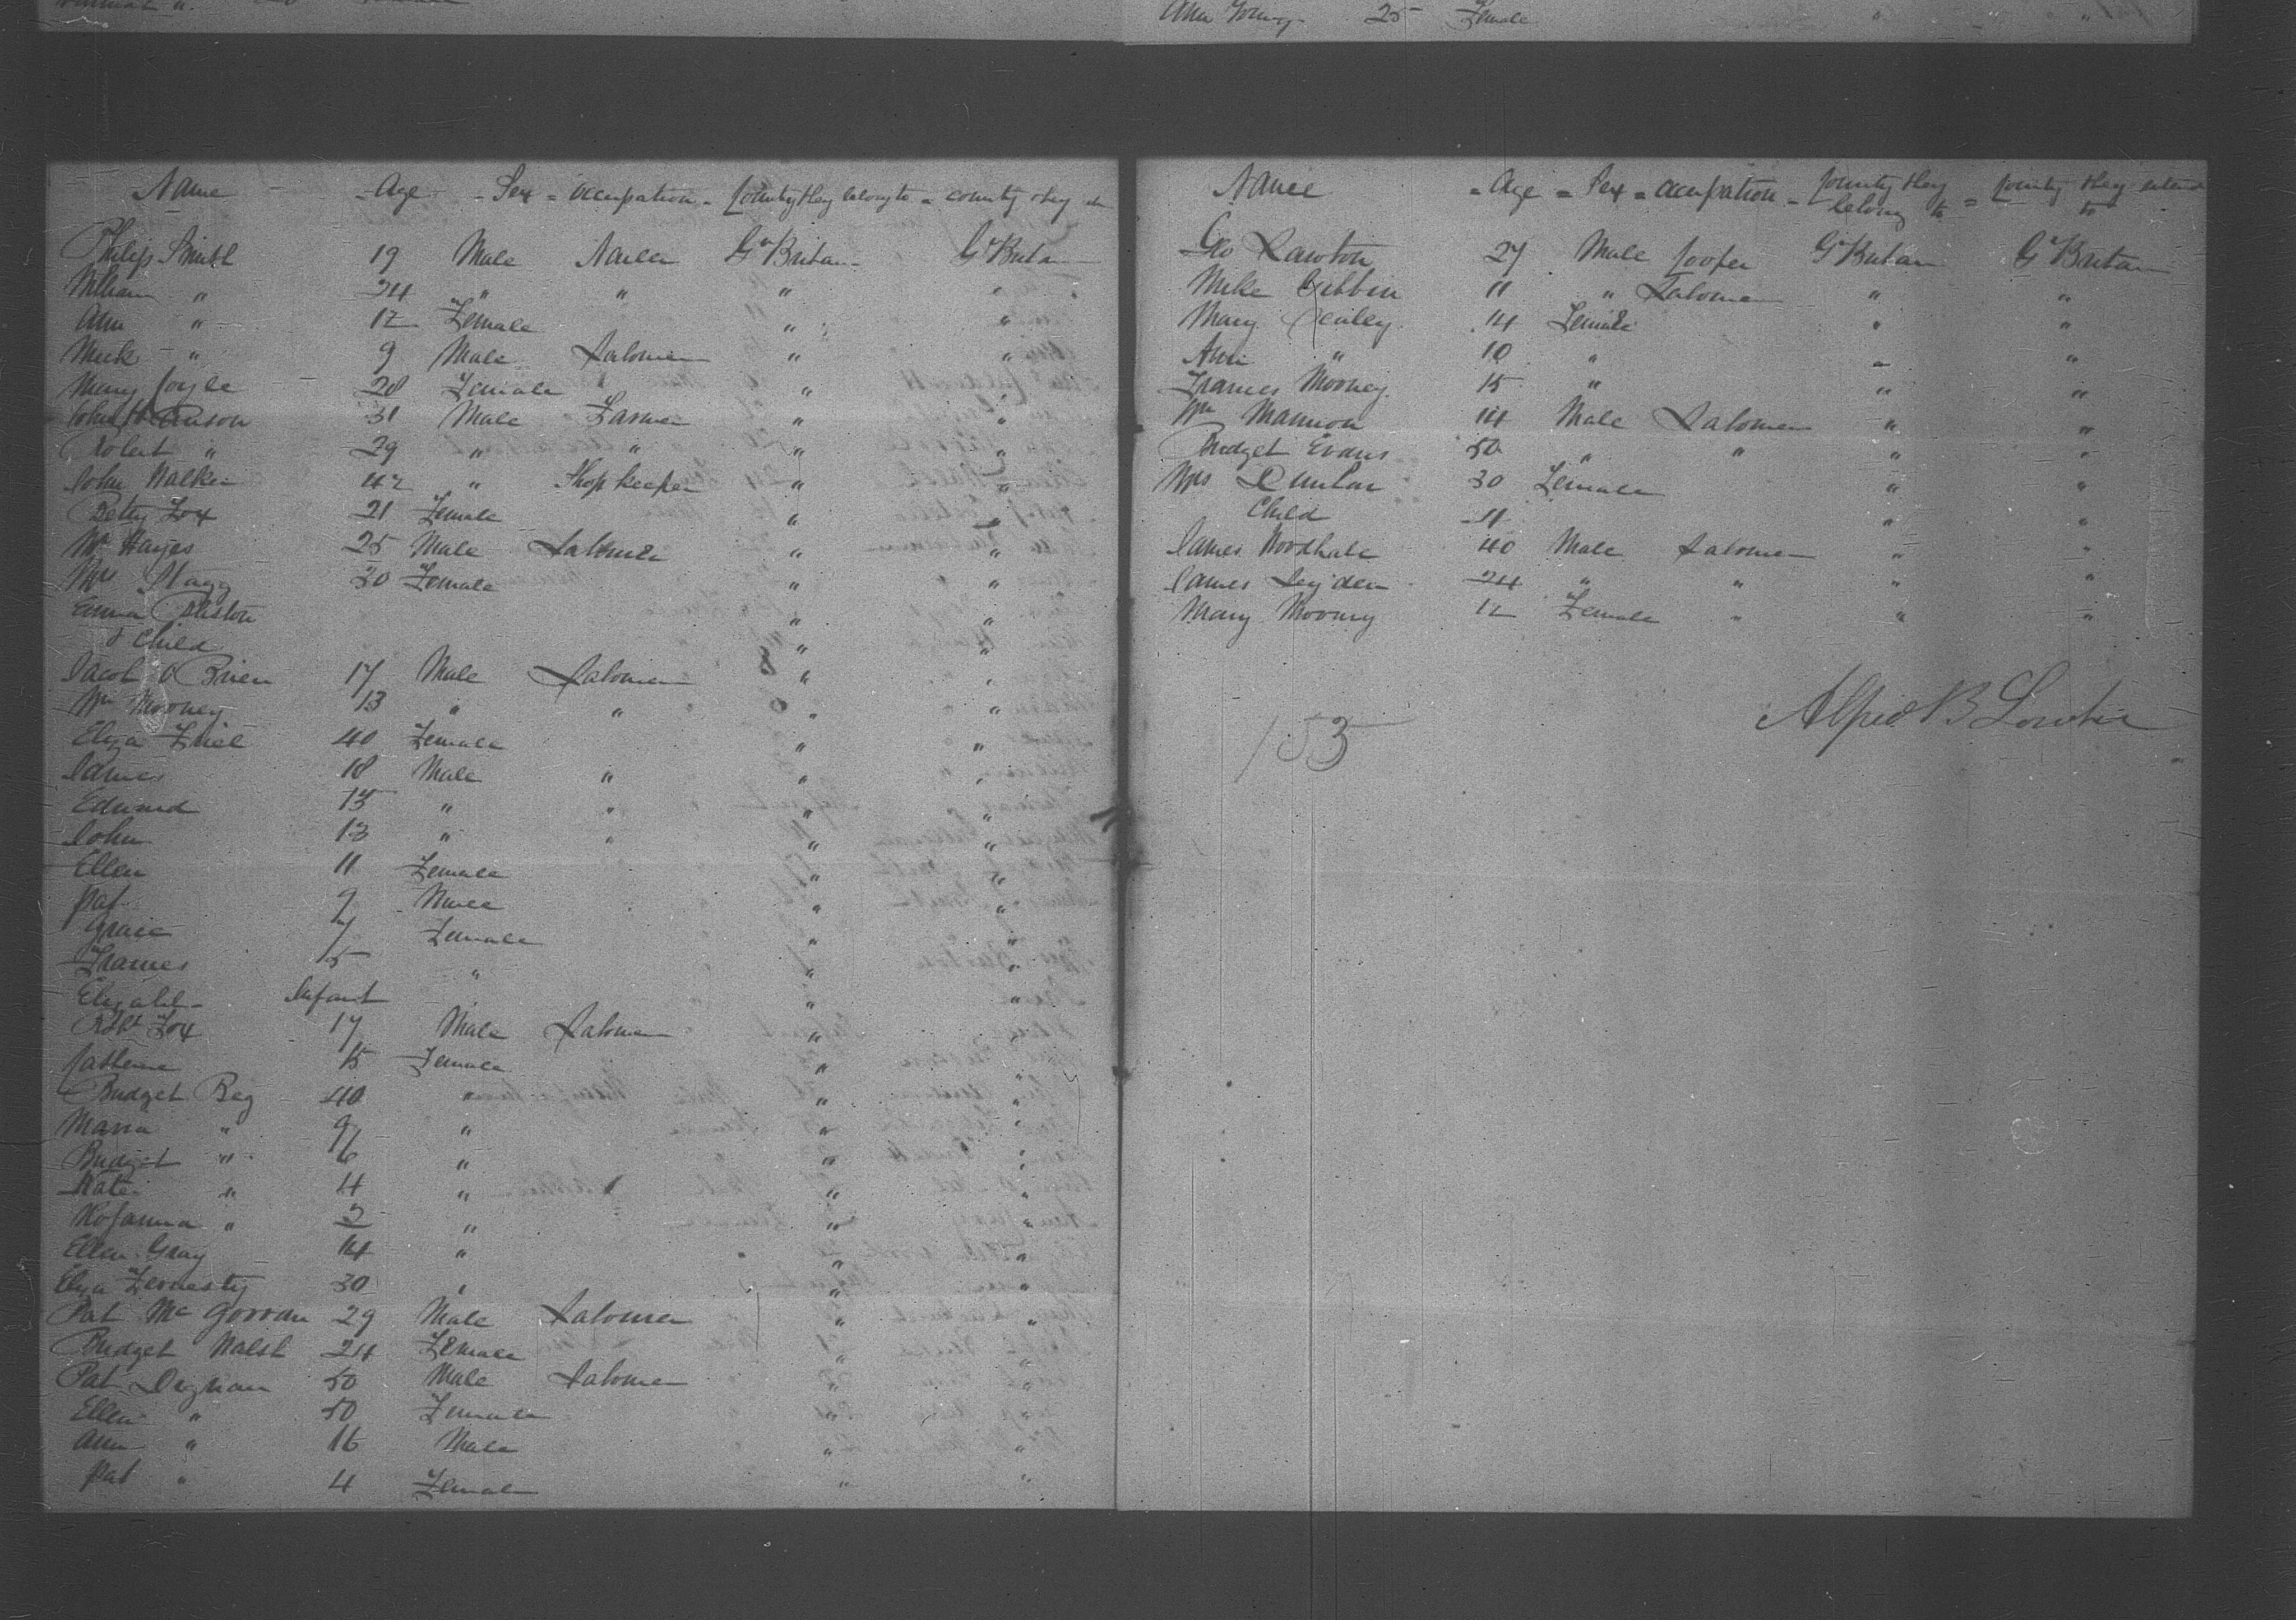 Ann Young 25 Female " "
Name - Age - Sex - occupation - Country they belong to - country they in
Philip Smith 19 Male Nailer Gt Britain Gt Britain
William " 24 " " " "
Ann " 12 Female " "
Mick " 9 Male Laborer " "
Mary Coyle 28 Female " "
31 Male Farmer " "
Robert " 29 " " " "
John Walker 42 " Shop keeper " "
Betsy Fox 21 Female " "
Wm Hayes 25 Male Laborer " "
Mrs Stagg 30 Female " "
Emma " "
& Child " "
Jacob O Brien 17 Male Laborer " "
Wm Mooney 13 " " " "
Eliza Friel 40 Female " "
James 18 Male " " "
Edward 15 " " " "
John 13 " " " "
Ellen 11 Female " "
Pat 9 Male " "
Grace 7 Female " "
Frances 5 " " "
Elizabth Infant " "
Robt Fox 17 Male Laborer " "
Catherine 15 Female " "
Bridget Beg 40 " " "
Maria " 9 " " "
Bridget " 6 " " "
Kate " 4 " " "
Rosanna " 2 " " "
Ellen Gray 14 " " "
Eliza 30 " " "
Pat Mc Gorran 29 Male Laborer " "
Bridget Walsh 24 Female " "
Pat Dignan 50 Male Laborer " "
Ellen " 50 Female " "
Ann " 16 Male " "
Pat " 4 Female " "
Name - Age - Sex - occupation - Country they belong to = Country they intend to
Geo Lawton 27 Male Cooper Gt Britain Gt Britain
Mike Gibbin 11 " Laborer " "
Mary 14 Female " "
Ann " 10 " " "
Frances Mooney 15 " " "
Wm Mannion 14 Male Laborer " "
Bridget Evans 50 " " " "
Mrs Dunlan 30 Female " "
Child 4 " "
James Woodhale 40 Male Laborer " "
James Leyden 24 " " " "
Mary Mooney 12 Female " " "
Alfred B Lowther
153